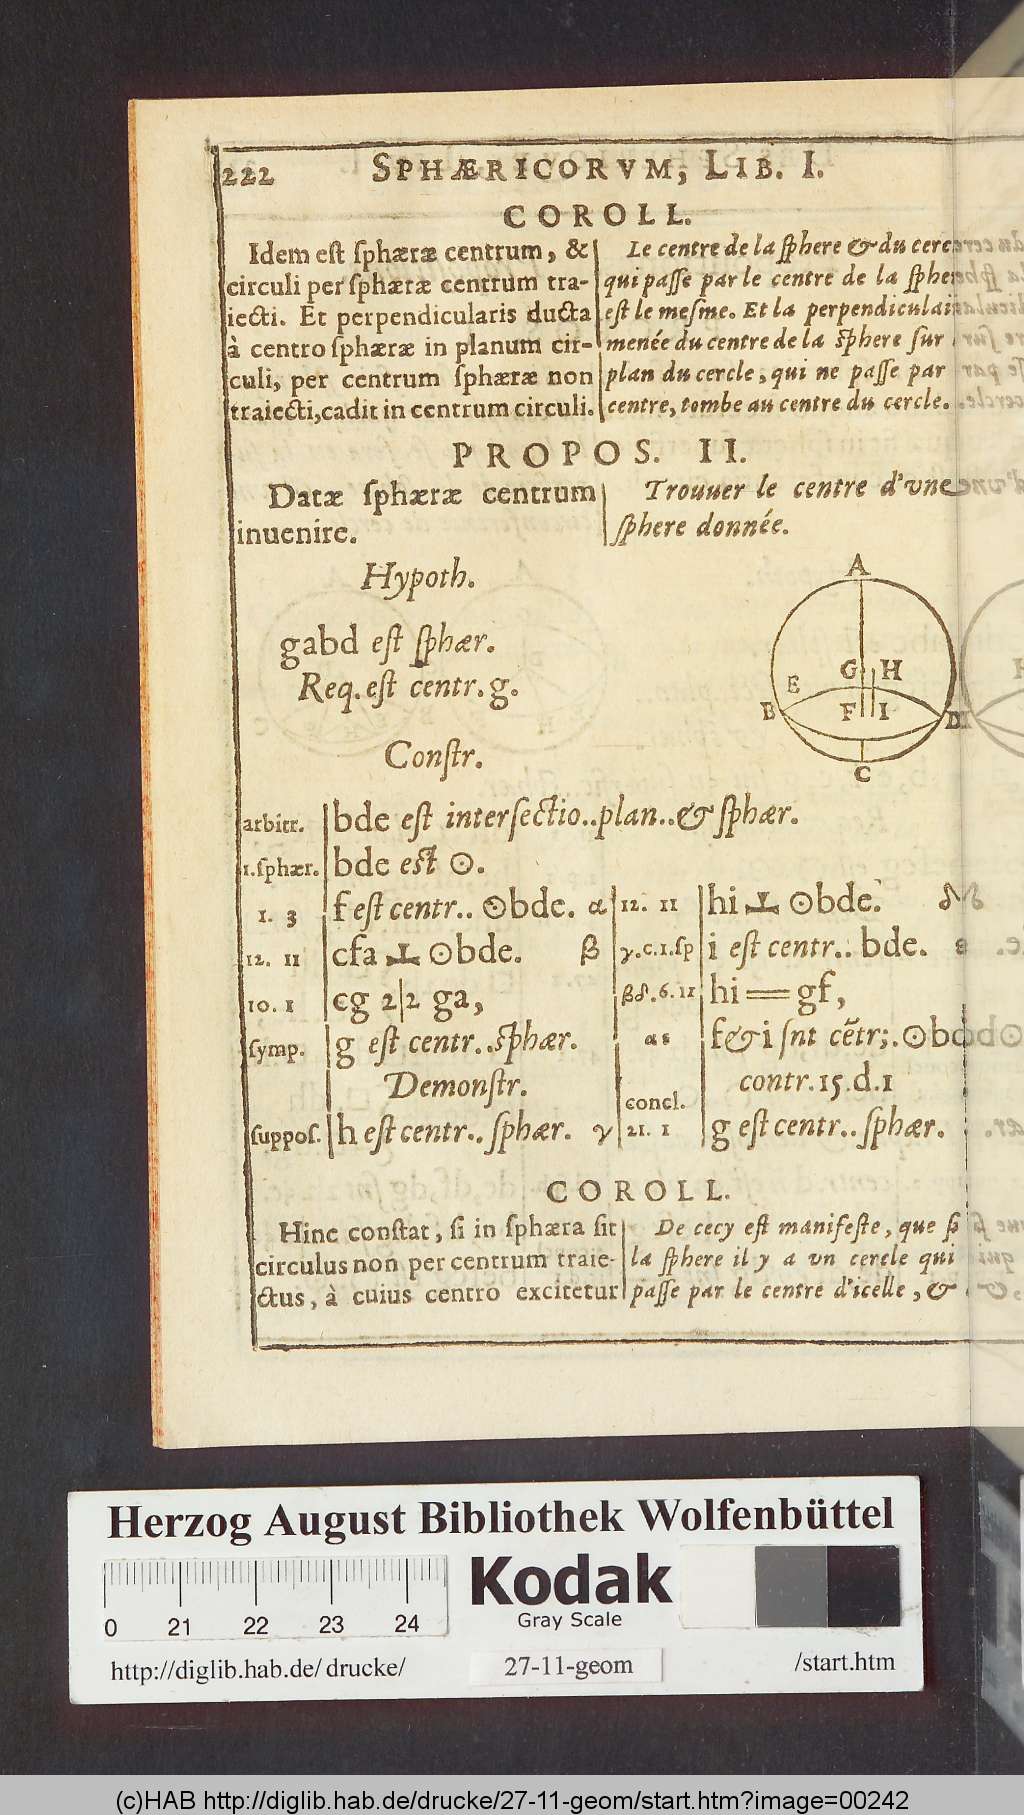 222 SPHÆRICORVM, LIB. I.
COROLL.
Idem est sphæræ centrum, &
circuli per sphæræ centrum tra-
iecti. Et perpendicularis ducta
à centro sphæræ in planum cir-
culi, per centrum sphæræ non
traiecti, cadit in centrum circuli.
Le centre de la sphere & du cerc
qui passe par le centre de la spher
est le mesme. Et la perpendiculai
menée du centre de la sphere sur
plan du cercle, qui ne passe par
centre, tombe au centre du cercle.
PROPOS. II.
Datæ sphæræ centrum
inuenire.
Trouuer le centre d'vne
sphere donnée.
Hypoth.
gabd est sphær.
Req. est centr. g.
A
G H
E
B F I D
C
Constr.
arbitr. bde est intersectio..plan..& sphær.
1. sphær. bde est ⊙.
1. 3 f est centr.. ⊙bde. α
12. 11 cfa ⊥ ⊙bde. β
10. 1 cg 2|2 ga,
symp. g est centr..sphær.
Demonstr.
suppos. h est centr.. sphær. γ
12. 11 hi ⊥ ⊙bde. δ
γ.c.1.sp i est centr.. bde. ε
βδ.6.11 hi = gf,
αε f & i snt cẽtr;. ⊙bd
contr. 15. d. 1
concl.
21. 1 g est centr.. sphær.
COROLL.
Hinc constat, si in sphæra sit
circulus non per centrum traie-
ctus, à cuius centro excitetur
De cecy est manifeste, que si
la sphere il y a vn cercle qui
passe par le centre d'icelle, &
Herzog August Bibliothek Wolfenbüttel
0 21 22 23 24
Kodak
Gray Scale
http://diglib.hab.de/drucke/ 27-11-geom /start.htm
(c)HAB http://diglib.hab.de/drucke/27-11-geom/start.htm?image=00242